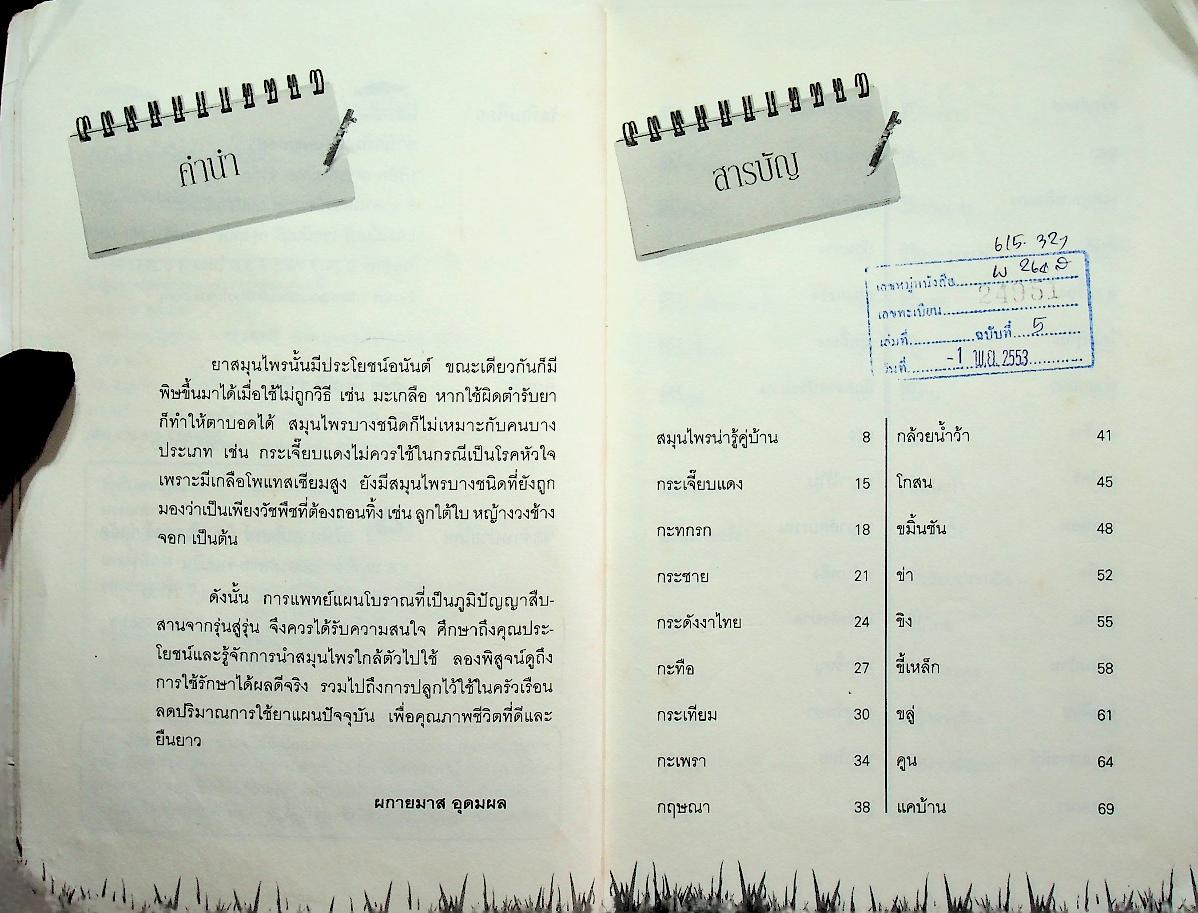 คำนำ
ยาสมุนไพรนั้นมีประโยชน์อนันต์ ขณะเดียวกันก็มี
พิษขึ้นมาได้เมื่อใช้ไม่ถูกวิธี เช่น มะเกลือ หากใช้ผิดตำรับยา
ก็ทำให้ตาบอดได้ สมุนไพรบางชนิดก็ไม่เหมาะกับคนบาง
ประเภท เช่น กระเจี๊ยบแดงไม่ควรใช้ในกรณีเป็นโรคหัวใจ
เพราะมีเกลือโพแทสเซียมสูง ยังมีสมุนไพรบางชนิดที่ยังถูก
มองว่าเป็นเพียงวัชพืชที่ต้องถอนทิ้ง เช่น ลูกใต้ใบ หญ้างวงช้าง
จอก เป็นต้น
ดังนั้น การแพทย์แผนโบราณที่เป็นภูมิปัญญาสืบ-
สานจากรุ่นสู่รุ่น จึงควรได้รับความสนใจ ศึกษาถึงคุณประ-
โยชน์และรู้จักการนำสมุนไพรใกล้ตัวไปใช้ ลองพิสูจน์ดูถึง
การใช้รักษาได้ผลดีจริง รวมไปถึงการปลูกไว้ใช้ในครัวเรือน
ลดปริมาณการใช้ยาแผนปัจจุบัน เพื่อคุณภาพชีวิตที่ดีและ
ยืนยาว
ผกายมาส อุดมผล
สารบัญ
615.321
เลขหมู่หนังสือ
เลขทะเบียน 24951
เล่มที่ ฉบับที่ 5
วันที่ -1 พ.ย. 2553
สมุนไพรน่ารู้คู่บ้าน 8
กระเจี๊ยบแดง 15
กะทกรก 18
กระชาย 21
กระดังงาไทย 24
กะทือ 27
กระเทียม 30
กะเพรา 34
กฤษณา 38
กล้วยน้ำว้า 41
โกสน 45
ขมิ้นชัน 48
ข่า 52
ขิง 55
ขี้เหล็ก 58
ขลู่ 61
คูน 64
แคบ้าน 69